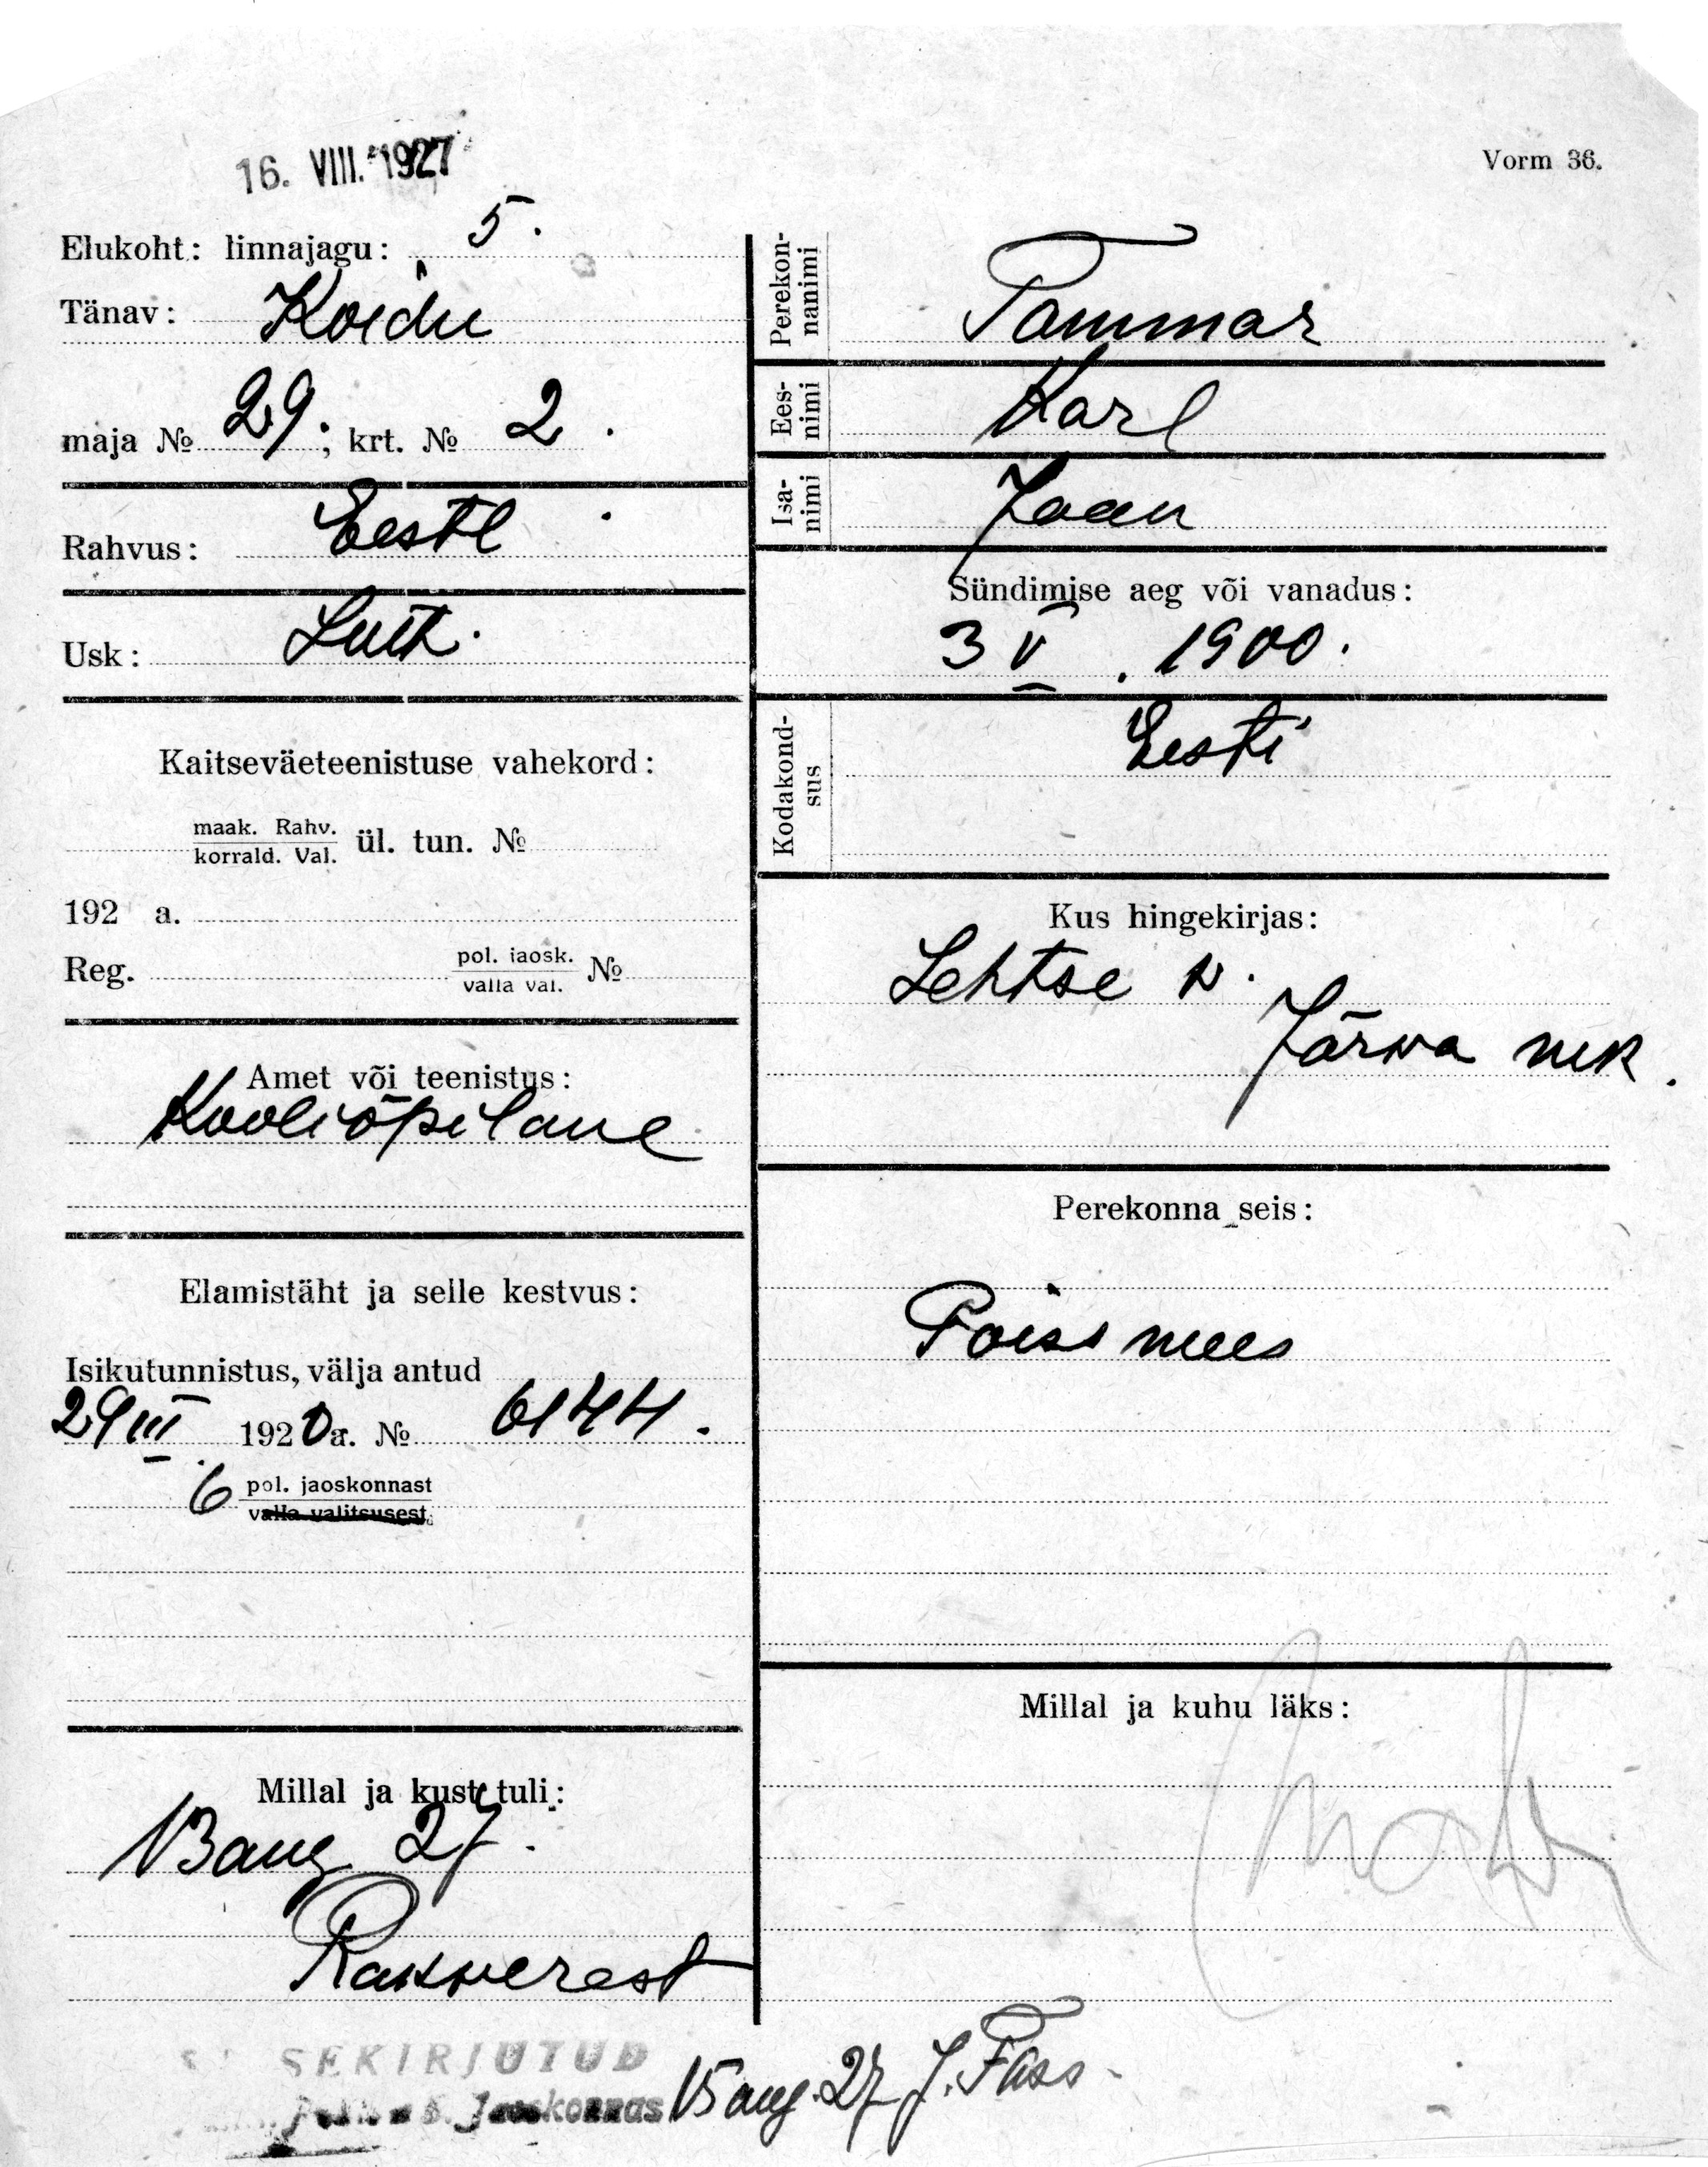 16. VIII. 1927
Vorm 36.
Elukoht: linnajagu: 5.
Tänav: Koidu
maja № 29; krt. № 2.
Rahvus: Eesti
Usk: Luth.
Kaitseväeteenistuse vahekord:
maak. Rahv.
korrald. Val. ül. tun. №
192 a.
Reg. pol. jaosk.
valla val. №
Amet või teenistus:
Kooliõpilane
Elamistäht ja selle kestvus:
Isikutunnistus, välja antud
29 III 1920 a. № 6144.
6 pol. jaoskonnast
valla valitsusest
Millal ja kust tuli:
13 aug 27.
Rakwerest
Perekonnanimi
Tammar
Eesnimi
Karl
Isanimi
Jaan
Sündimise aeg või vanadus:
3 V. 1900.
Kodakondsus
Eesti
Kus hingekirjas:
Lehtse w.
Järwa mk.
Perekonna seis:
Poissmees
Millal ja kuhu läks:
SEKIRJUTUD
Jaoskonnas 15 aug. 27 J.